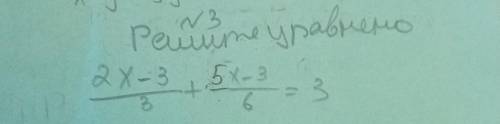 №3
Решите уравнено
2x-3/3 + 5x-3/6 = 3